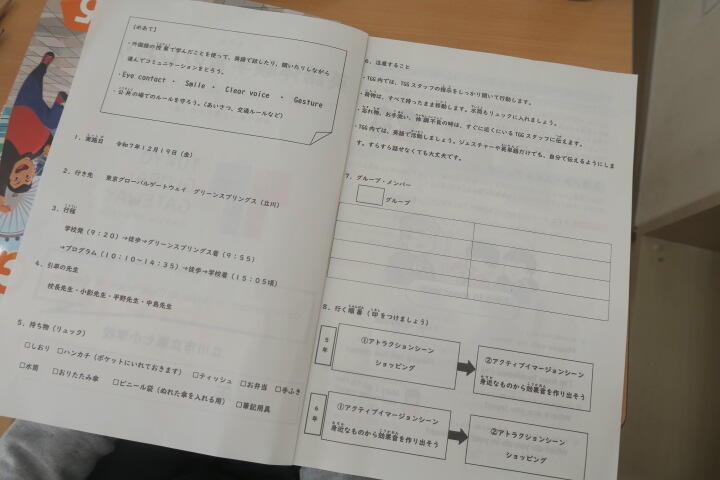 【めあて】
・外国語の授業で学んだことを使って、英語で話したり、聞いたりしながら
進んでコミュニケーションをとろう。
・Eye contact ・ Smile ・ Clear voice ・ Gesture
・公共の場でのルールを守ろう。(あいさつ、交通ルールなど)
1．実施日　令和7年12月19日（金）
2．行き先　東京グローバルゲートウェイ　グリーンスプリングス（立川）
3．行程
学校発（9：20）→徒歩→グリーンスプリングス着（9：55）
→プログラム（10：10～14：35）→徒歩→学校着（15：05頃）
4．引率の先生
校長先生・小影先生・平野先生・中島先生
5．持ち物（リュック）
□しおり　□ハンカチ（ポケットにいれておきます）　□ティッシュ　□お弁当　□手ふき
□水筒　□おりたたみ傘　□ビニール袋（ぬれた傘を入れる用）　□筆記用具
6．注意すること
・TGG内では、TGGスタッフの指示をしっかり聞いて行動します。
・荷物は、すべて持ったまま移動します。水筒もリュックに入れましょう。
・忘れ物、お手洗い、体調不良の時は、すぐに近くにいるTGGスタッフに伝えます。
・TGG内では、英語で活動しましょう。ジェスチャーや英単語だけでも、自分で伝えるようにしま
す。すらすら話せなくても大丈夫です。
7．グループ・メンバー
グループ
8．行く順番（印をつけましょう）
5年
①アトラクションシーン
ショッピング
②アクティブイマージョンシーン
身近なものから効果音を作り出そう
6年
①アクティブイマージョンシーン
身近なものから効果音を作り出そう
②アトラクションシーン
ショッピング